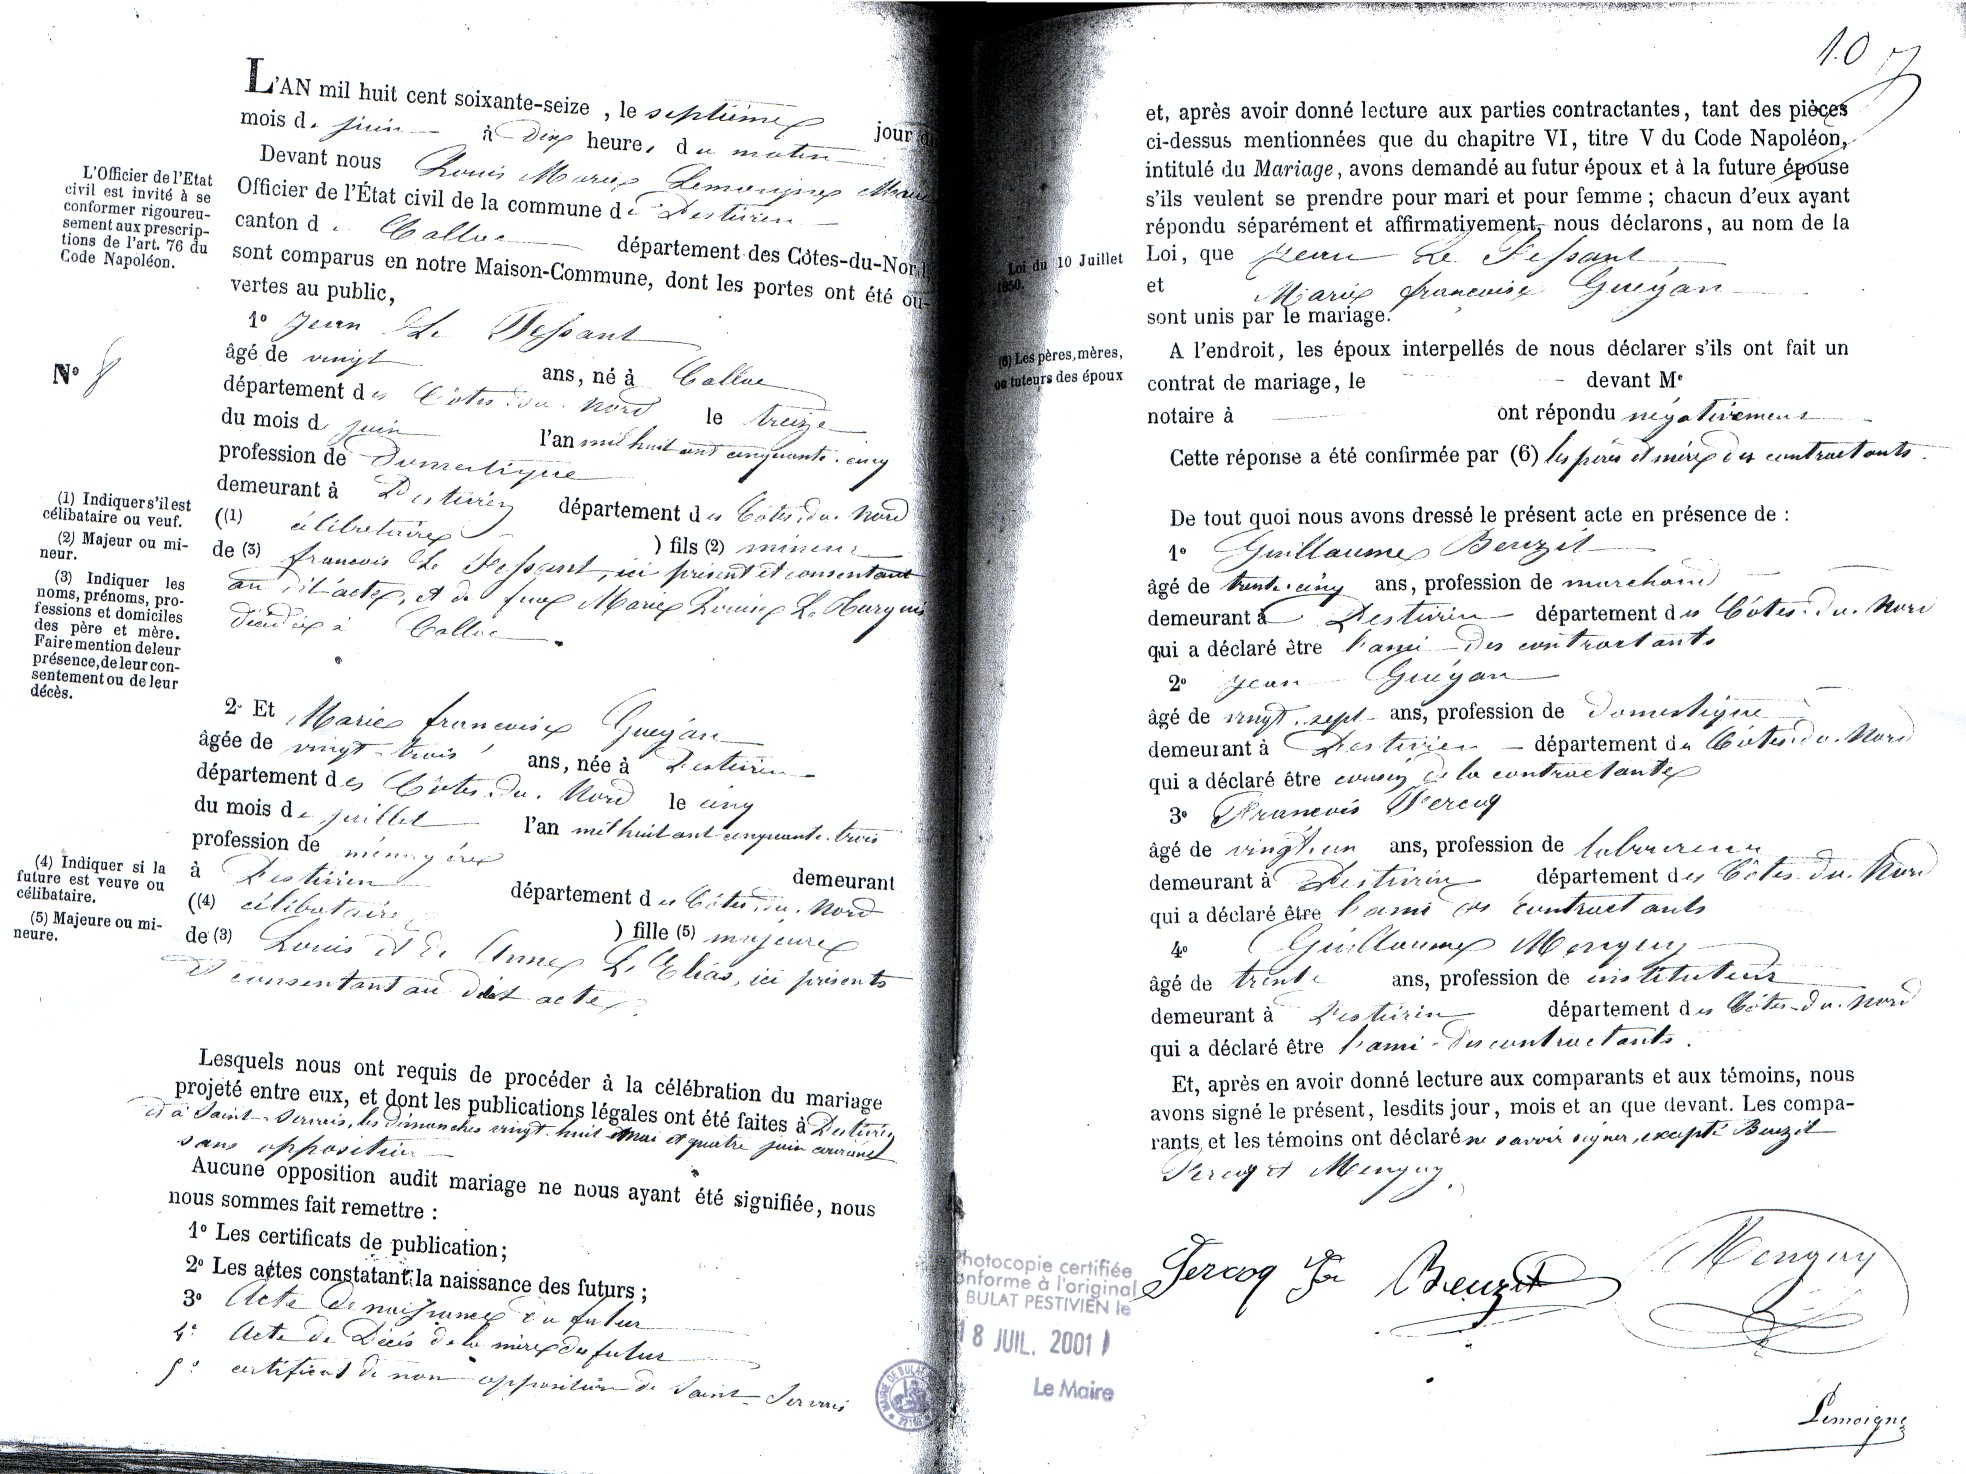 L'AN mil huit cent soixante-seize, le septième jour du
mois de juin à dix heures du matin
Devant nous Louis Marie Lemoigne Maire
Officier de l'État civil de la commune de Pestivien
canton de Callac département des Côtes-du-Nord,
sont comparus en notre Maison-Commune, dont les portes ont été ou-
vertes au public,
1° Jean Le Fessant
âgé de vingt ans, né à Callac
département des Côtes-du-Nord le treize
du mois de juin l'an mil huit cent cinquante-cinq
profession de Domestique
demeurant à Pestivien département des Côtes-du-Nord
((1) célibataire ) fils (2) mineur
de (3) francois Le Fessant, ici présent et consentant
au dit acte, et de feue Marie Louise Le
décédée à Callac.
2° Et Marie francoise Guéyan
âgée de vingt-trois ans, née à Pestivien
département des Côtes-du-Nord le cinq
du mois de juillet l'an mil huit cent cinquante-trois
profession de ménagère demeurant
à Pestivien département des Côtes-du-Nord
((4) célibataire ) fille (5) majeure
de (3) Louis et de Anne Le Eliás, ici présents
et consentant au dit acte.
Lesquels nous ont requis de procéder à la célébration du mariage
projeté entre eux, et dont les publications légales ont été faites à Pestivien
et à Saint-Servais, les dimanches vingt-huit mai et quatre juin courant
sans opposition
Aucune opposition audit mariage ne nous ayant été signifiée, nous
nous sommes fait remettre :
1° Les certificats de publication;
2° Les actes constatant la naissance des futurs;
3° Acte de naissance du futur
4° Acte de Décès de la mère du futur
5° certificat de non opposition de Saint-Servais
L'Officier de l'Etat
civil est invité à se
conformer rigoureu-
sement aux prescrip-
tions de l'art. 76 du
Code Napoléon.
N° 8
(1) Indiquer s'il est
célibataire ou veuf.
(2) Majeur ou mi-
neur.
(3) Indiquer les
noms, prénoms, pro-
fessions et domiciles
des père et mère.
Faire mention de leur
présence, de leur con-
sentement ou de leur
décès.
(4) Indiquer si la
future est veuve ou
célibataire.
(5) Majeure ou mi-
neure.
MAIRIE DE BULAT
10
et, après avoir donné lecture aux parties contractantes, tant des pièces
ci-dessus mentionnées que du chapitre VI, titre V du Code Napoléon,
intitulé du Mariage, avons demandé au futur époux et à la future épouse
s'ils veulent se prendre pour mari et pour femme; chacun d'eux ayant
répondu séparément et affirmativement, nous déclarons, au nom de la
Loi, que Jean Le Fessant
et Marie francoise Guéyan
sont unis par le mariage.
A l'endroit, les époux interpellés de nous déclarer s'ils ont fait un
contrat de mariage, le devant Me
notaire à ont répondu négativement
Cette réponse a été confirmée par (6) les pères et mère des contractants.
De tout quoi nous avons dressé le présent acte en présence de :
1° Guillaume Beuzit
âgé de trente-cinq ans, profession de marchand
demeurant à Pestivien département des Côtes-du-Nord
qui a déclaré être l'ami des contractants
2° Jean Guéyan
âgé de vingt-sept ans, profession de domestique
demeurant à Pestivien département des Côtes-du-Nord
qui a déclaré être cousin de la contractante
3° Francois Fercoq
âgé de vingt-un ans, profession de laboureur
demeurant à Pestivien département des Côtes-du-Nord
qui a déclaré être l'ami des contractants
4° Guillaume Menguy
âgé de trente ans, profession de instituteur
demeurant à Pestivien département des Côtes-du-Nord
qui a déclaré être l'ami des contractants.
Et, après en avoir donné lecture aux comparants et aux témoins, nous
avons signé le présent, lesdits jour, mois et an que devant. Les compa-
rants et les témoins ont déclaré ne savoir signer, excepté Beuzit
Fercoq et Menguy.
Fercoq Beuzit Menguy
Lemoigne
Loi du 10 Juillet
1850.
(6) Les pères, mères,
ou tuteurs des époux
Photocopie certifiée
conforme à l'original
BULAT PESTIVIEN le
18 JUIL. 2001
Le Maire